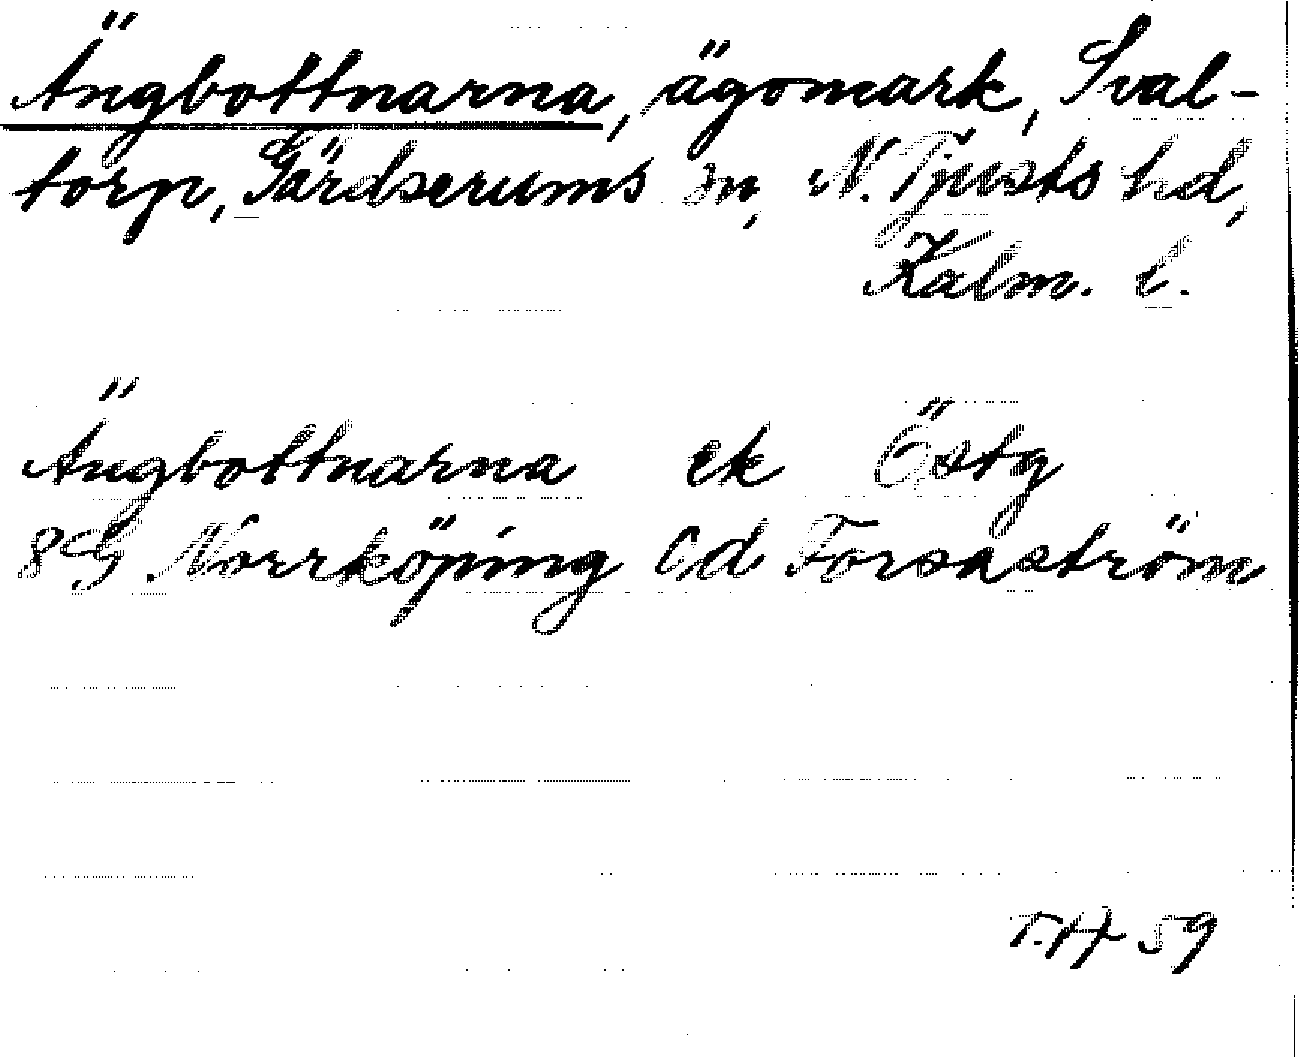 Ängbottnarna, ägomark, Sval-
torp, Gärdserums sn, N. Tjusts hd,
Kalm. l.
Ängbottnarna ek Östg
8G Norrköping Od Forsaström
T.H 59